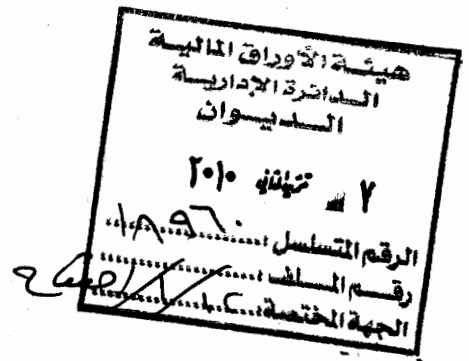 هيئة الأوراق المالية
الدائرة الإدارية
الديوان
٧ تشرين الثاني ٢٠١٠
الرقم المتسلسل: ١٨٩٦٠
رقم الملف:
الجهة المختصة: